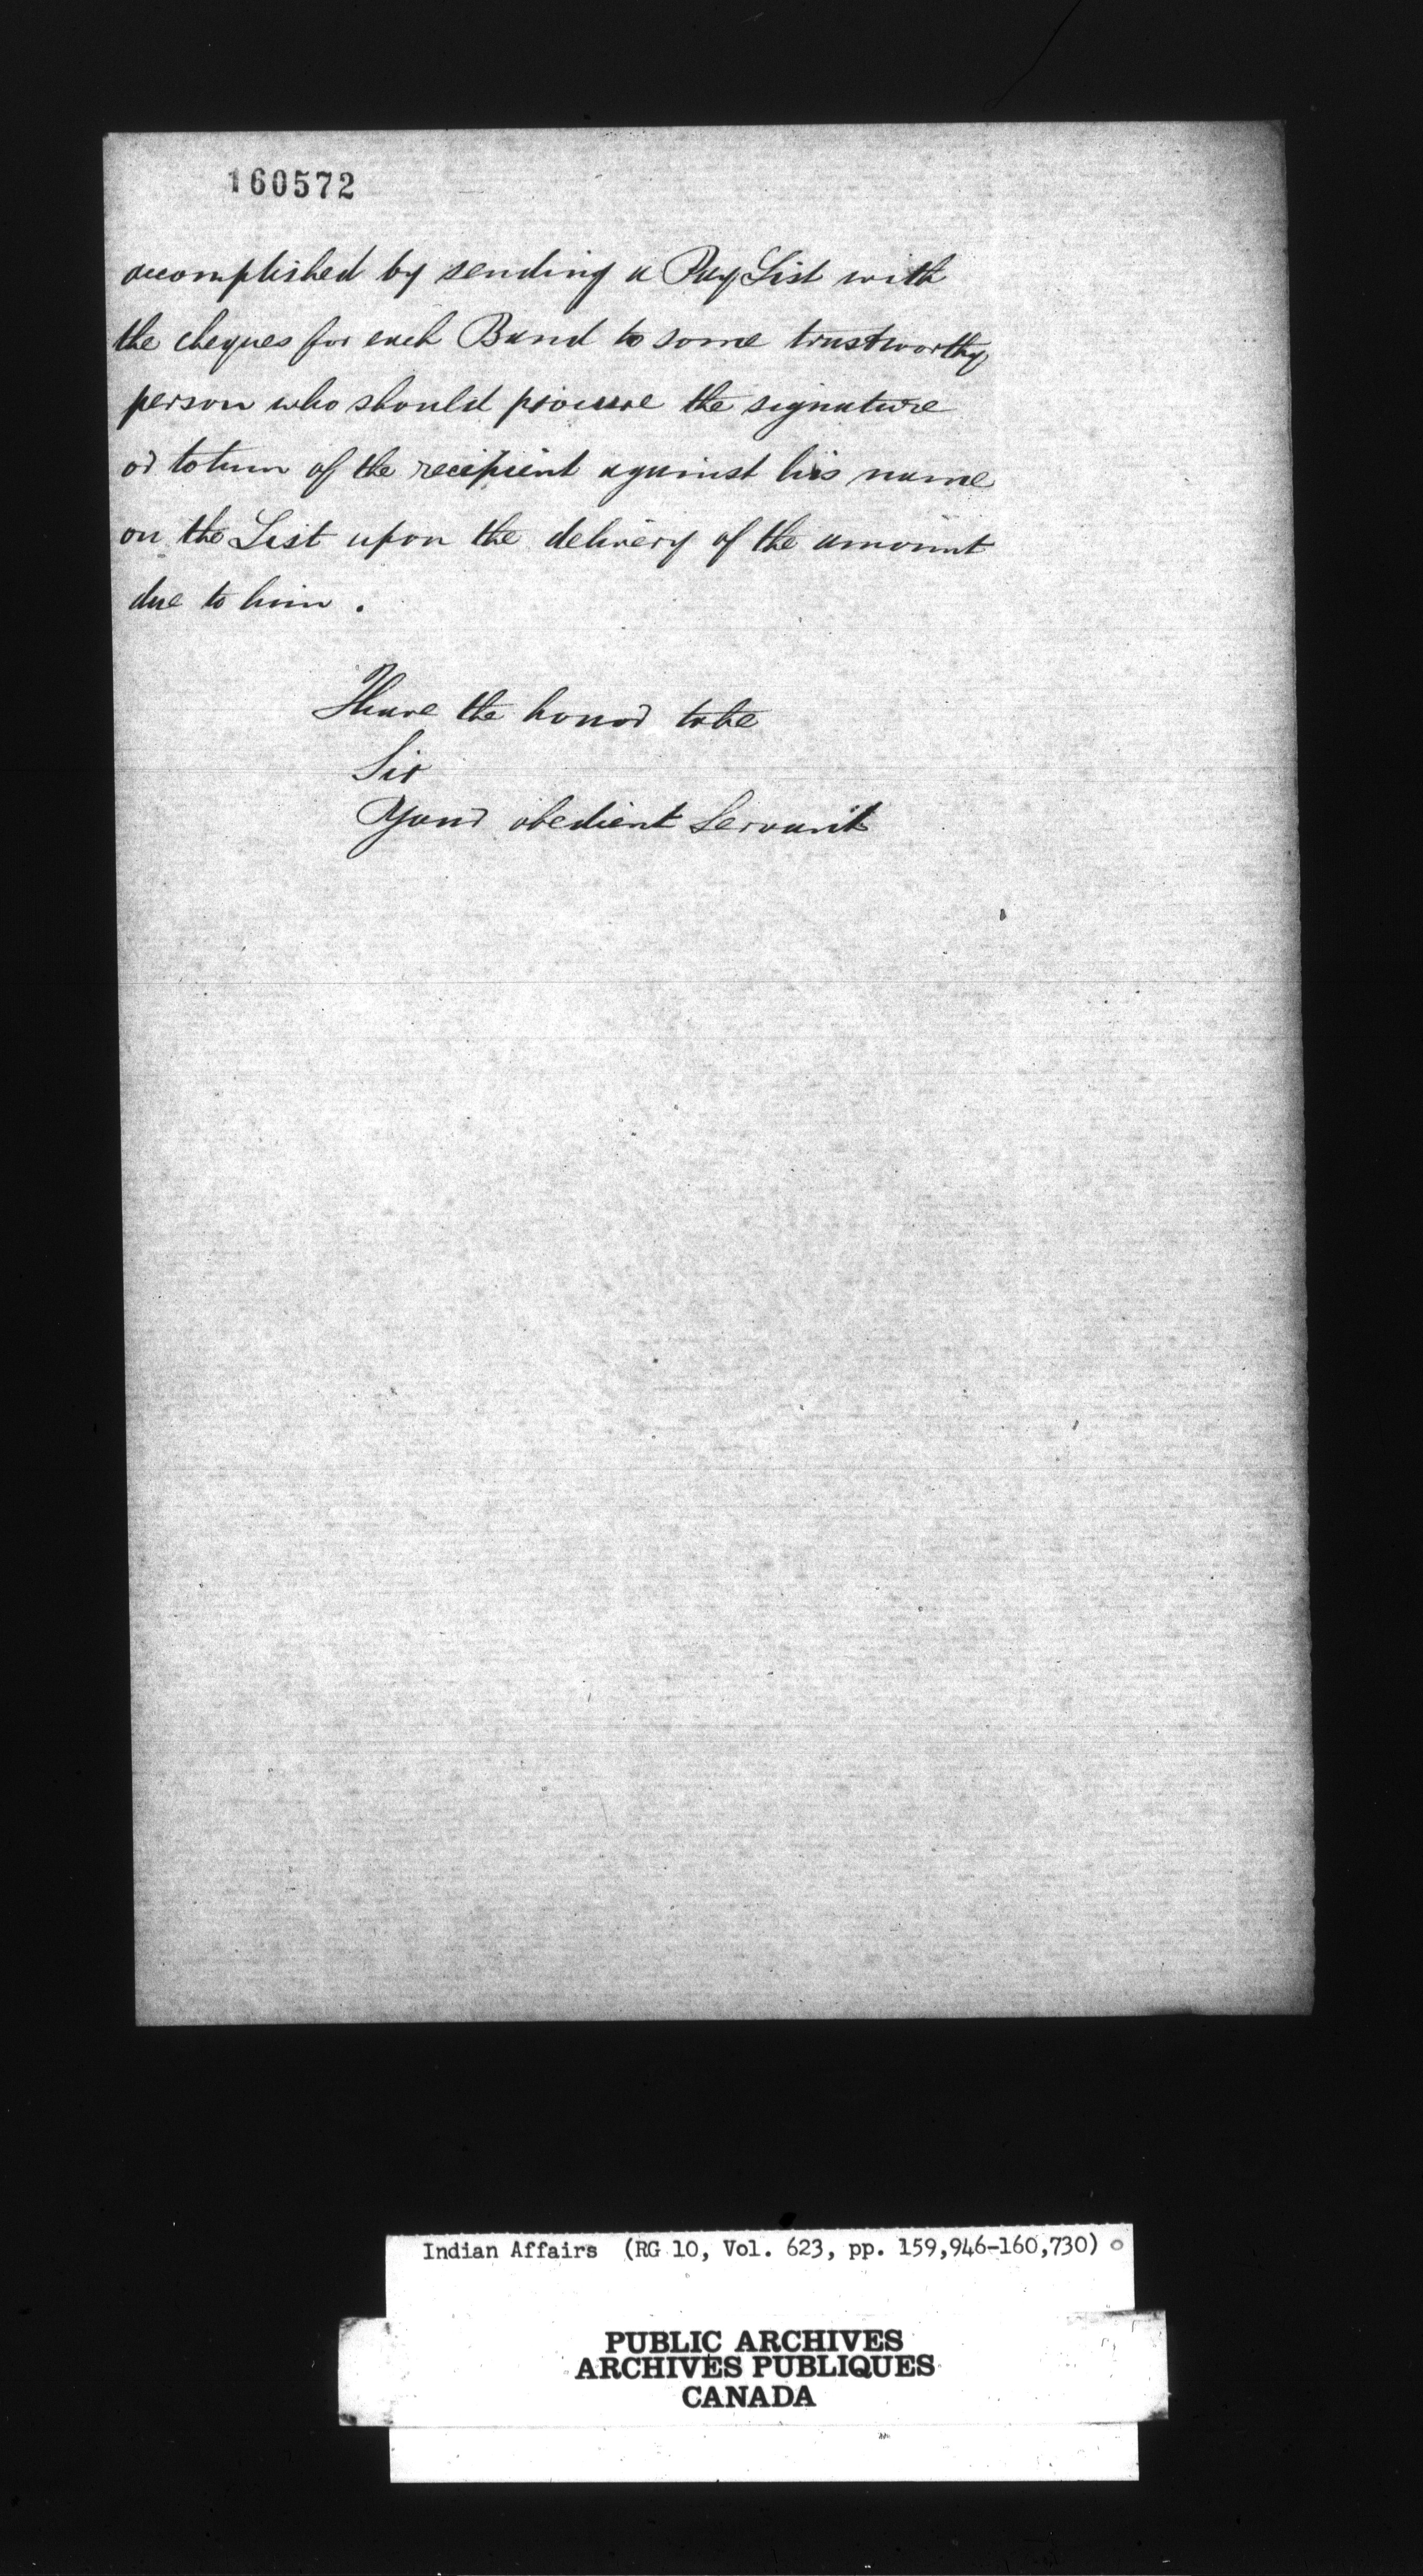 160572
accomplished by sending a Pay List with
the cheques for each Band to some trustworthy
person who should procure the signature
or totum of the recipient against his name
on the List upon the delivery of the amount
due to him.
I have the honor to be
Sir
Your obedient Servant
Indian Affairs (RG 10, Vol. 623, pp. 159,946-160,730)
PUBLIC ARCHIVES
ARCHIVES PUBLIQUES
CANADA